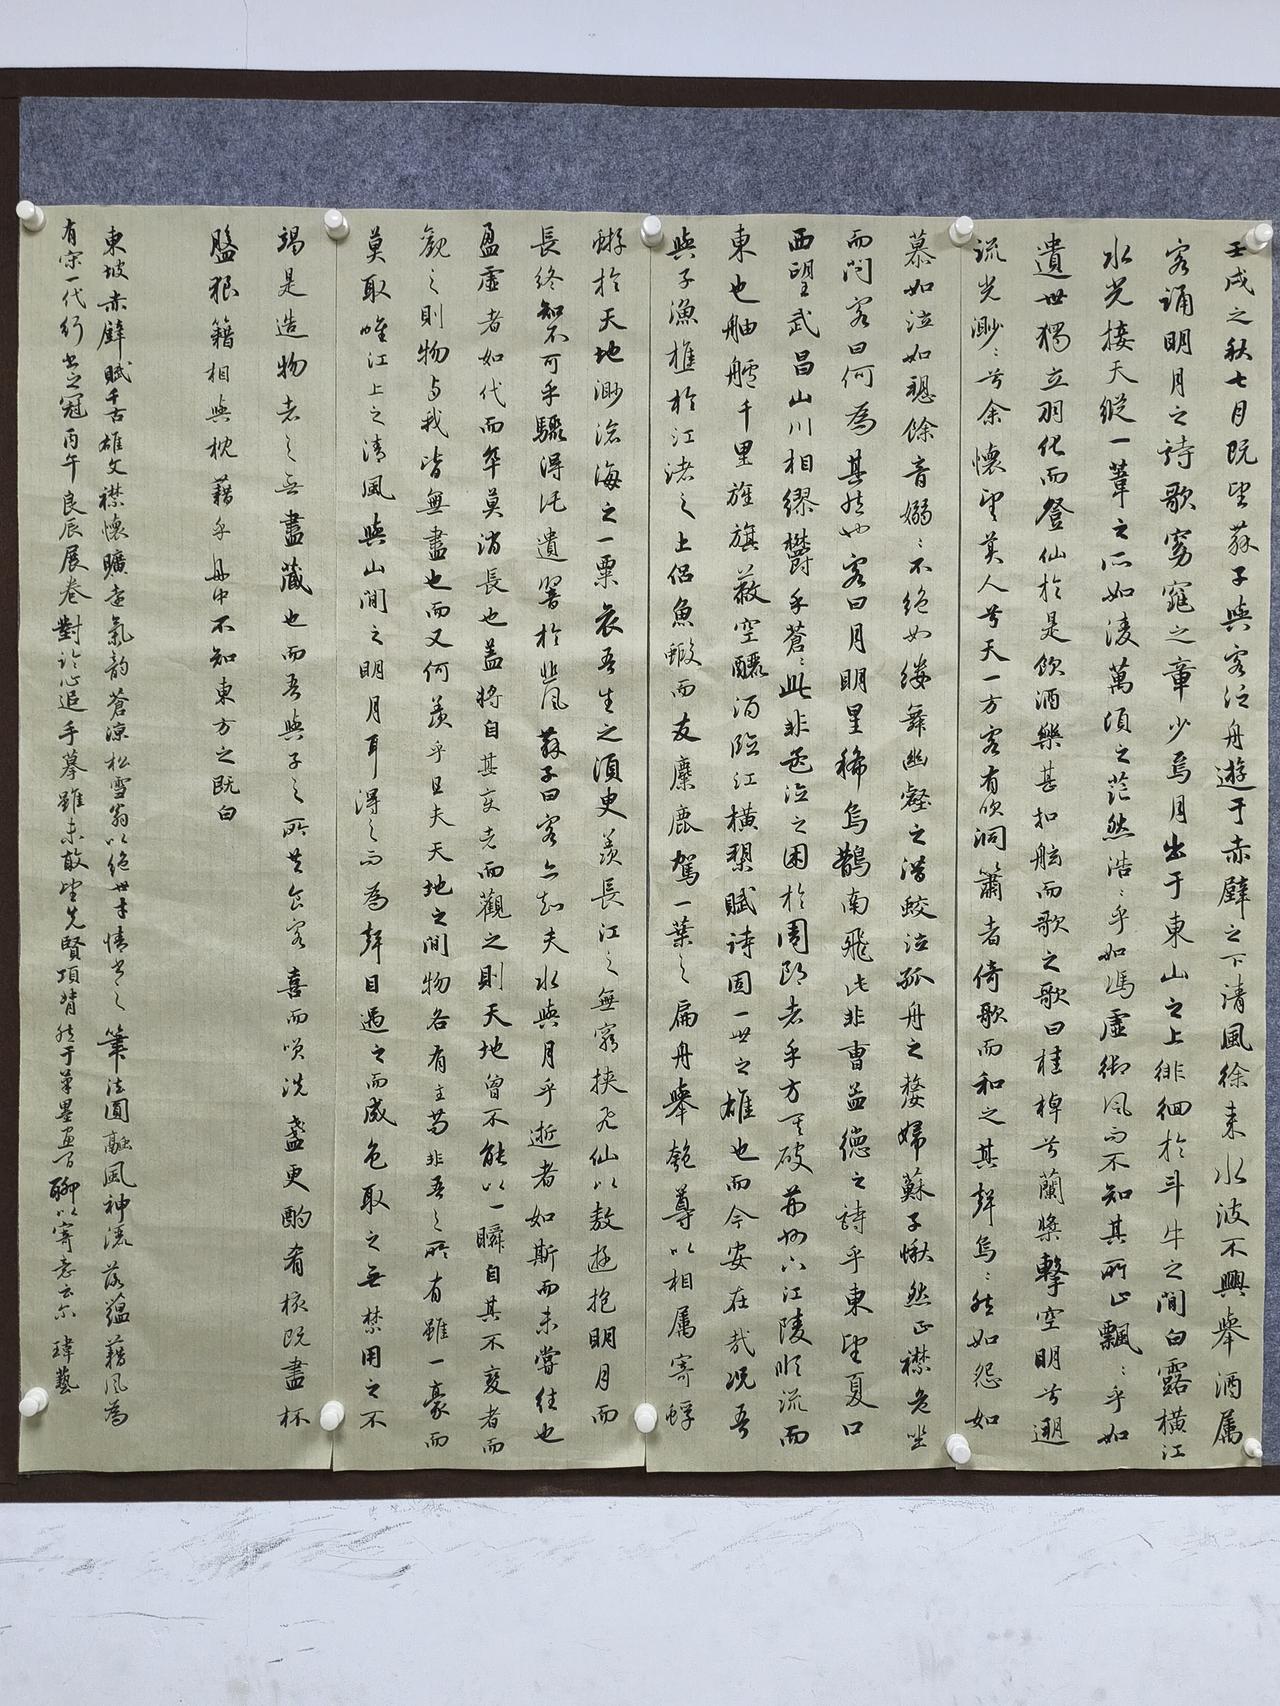 壬戌之秋七月既望蘇子與客泛舟遊于赤壁之下清風徐來水波不興舉酒属
客誦明月之詩歌窈窕之章少焉月出于東山之上徘徊於斗牛之間白露橫江
水光接天縱一葦之所如淩萬頃之茫然浩〻乎如馮虛御風而不知其所止飄〻乎如
遺世獨立羽化而登仙於是飲酒樂甚扣舷而歌之歌曰桂棹兮蘭槳擊空明兮遡
流光渺〻兮余懷望美人兮天一方客有吹洞簫者倚歌而和之其聲烏〻然如怨如
慕如泣如訴餘音嫋〻不絕如縷舞幽壑之潛蛟泣孤舟之嫠婦蘇子愀然正襟危坐
而問客曰何為其然也客曰月明星稀烏鵲南飛此非曹孟德之詩乎東望夏口
西望武昌山川相繆欝乎蒼〻此非孟德之困於周郎者乎方其破荊州下江陵順流而
東也舳艫千里旌旗蔽空釃酒臨江橫槊賦詩固一世之雄也而今安在哉況吾
與子漁樵於江渚之上侶魚蝦而友麋鹿駕一葉之扁舟舉匏尊以相属寄蜉
蝣於天地渺滄海之一粟哀吾生之須臾羨長江之無窮挾飛仙以敖遊抱明月而
長終知不可乎驟得託遺響於悲風蘇子曰客亦知夫水與月乎逝者如斯而未嘗往也
盈虛者如代而卒莫消長也蓋將自其變者而觀之則天地曾不能以一瞬自其不變者而
觀之則物与我皆無盡也而又何羨乎且夫天地之間物各有主苟非吾之所有雖一豪而
莫取唯江上之清風與山間之明月耳得之而為聲目遇之而成色取之無禁用之不
竭是造物者之無盡藏也而吾與子之所共食客喜而笑洗盞更酌肴核既盡杯
盤狼籍相與枕藉乎舟中不知東方之既白
東坡赤壁賦千古雄文襟懷曠達氣韵蒼凉松雪翁以絕世才情書之筆法圓融風神灑落蘊藉風為
有宗一代行書之冠丙午良辰展卷對臨心追手摹雖未敢望先賢項背然于筆墨畫間聊以寄意云尔 瑋藝